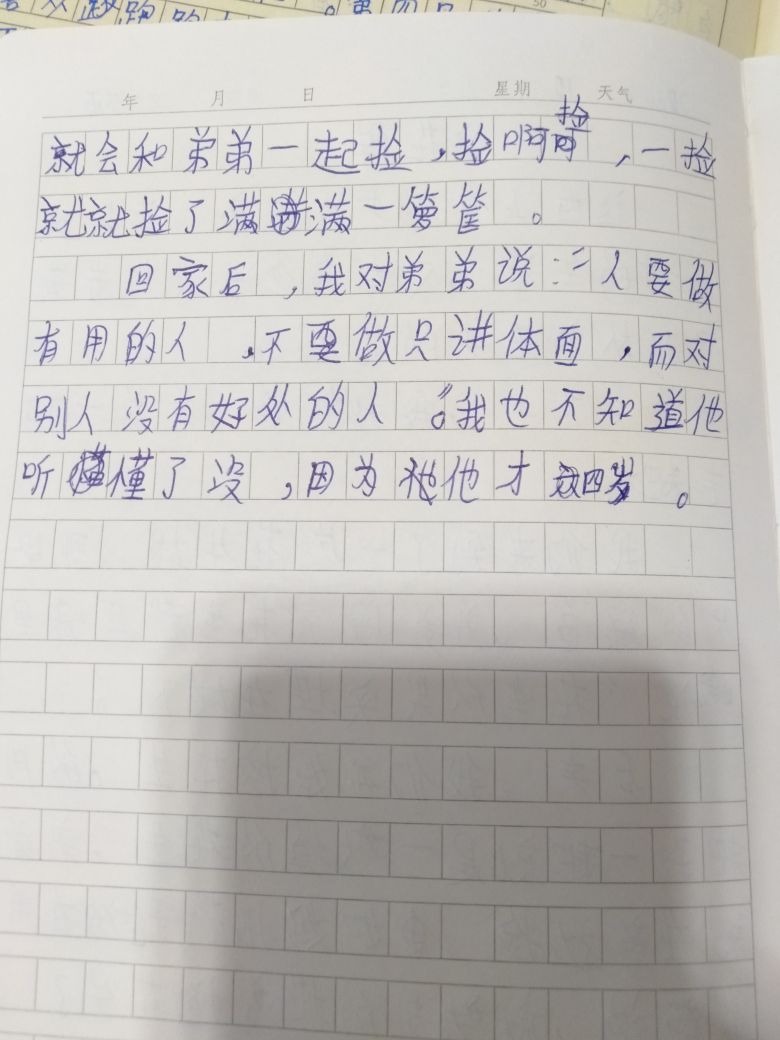 年 月 日 星期 天气
就会和弟弟一起捡，捡啊捡，一捡
就就捡了满满一箩筐。
回家后，我对弟弟说："人要做
有用的人，不要做只讲体面，而对
别人没有好处的人。"我也不知道他
听懂了没，因为他他才四岁。